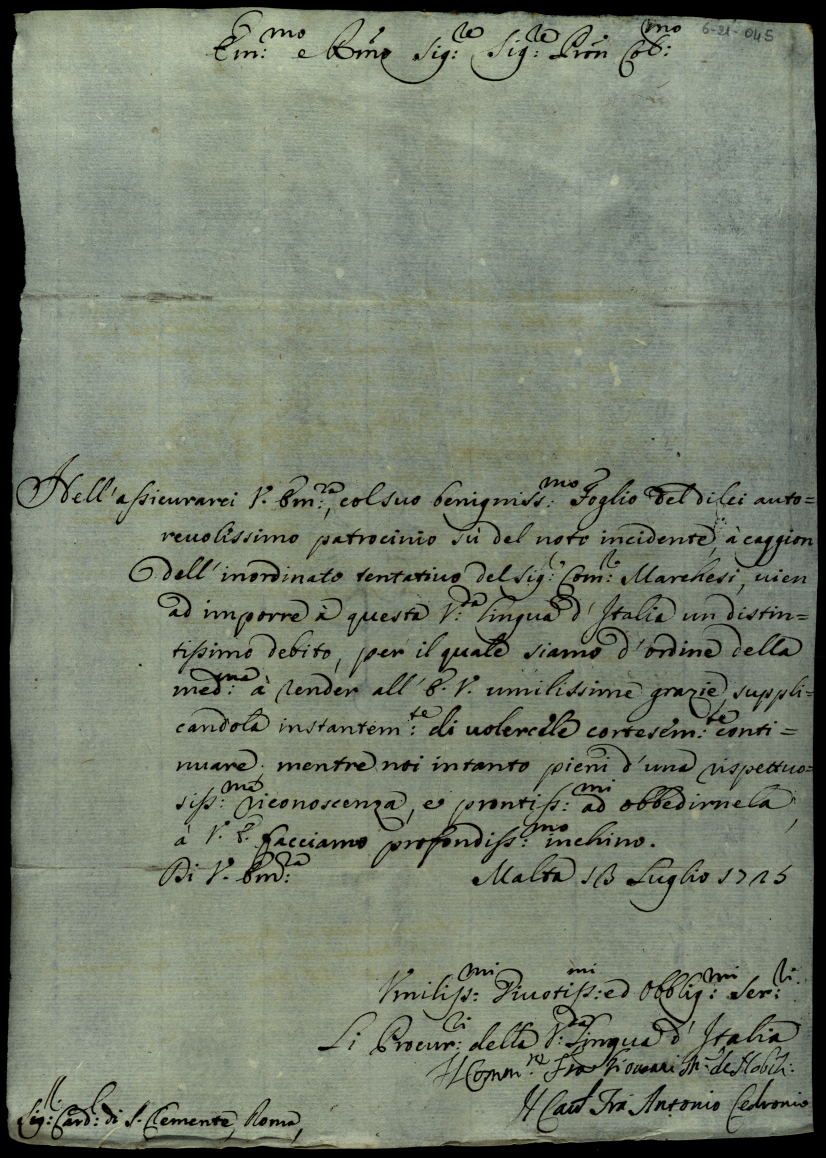 6-21-045
Em:mo e Rmo Sig:re Sig:re Pron Col:mo
Nell'assicurarci V. Em:za, col suo benigniss:mo Foglio del di lei auto=
revolissimo patrocinio sù del noto incidente, à caggion
dell'inordinato tentativo del Sig:r Com:r Marchesi, vien
ad imporre à questa V:da Lingua d'Italia un distin=
tissimo debito, per il quale siamo d'ordine della
med:ma à render all'E. V. umilissime grazie, suppli=
candola instantem:te di volercele cortesem:te conti=
nuare; mentre noi intanto pieni d'una rispettuo=
siss:ma riconoscenza, e prontiss:mi ad obbedirnela,
à V. E. facciamo profondiss:mo inchino.
Di V. Em:za Malta 13 Luglio 1725
Vmiliss:mi Divotiss:mi ed Obblig:mi Ser:ri
Li Procur:ri della V:da Lingua d'Italia
Il Comm:re Fra Giovanni
Il Cau: Frà Antonio Cedronio
Sig: Card: di S. Clemente, Roma,